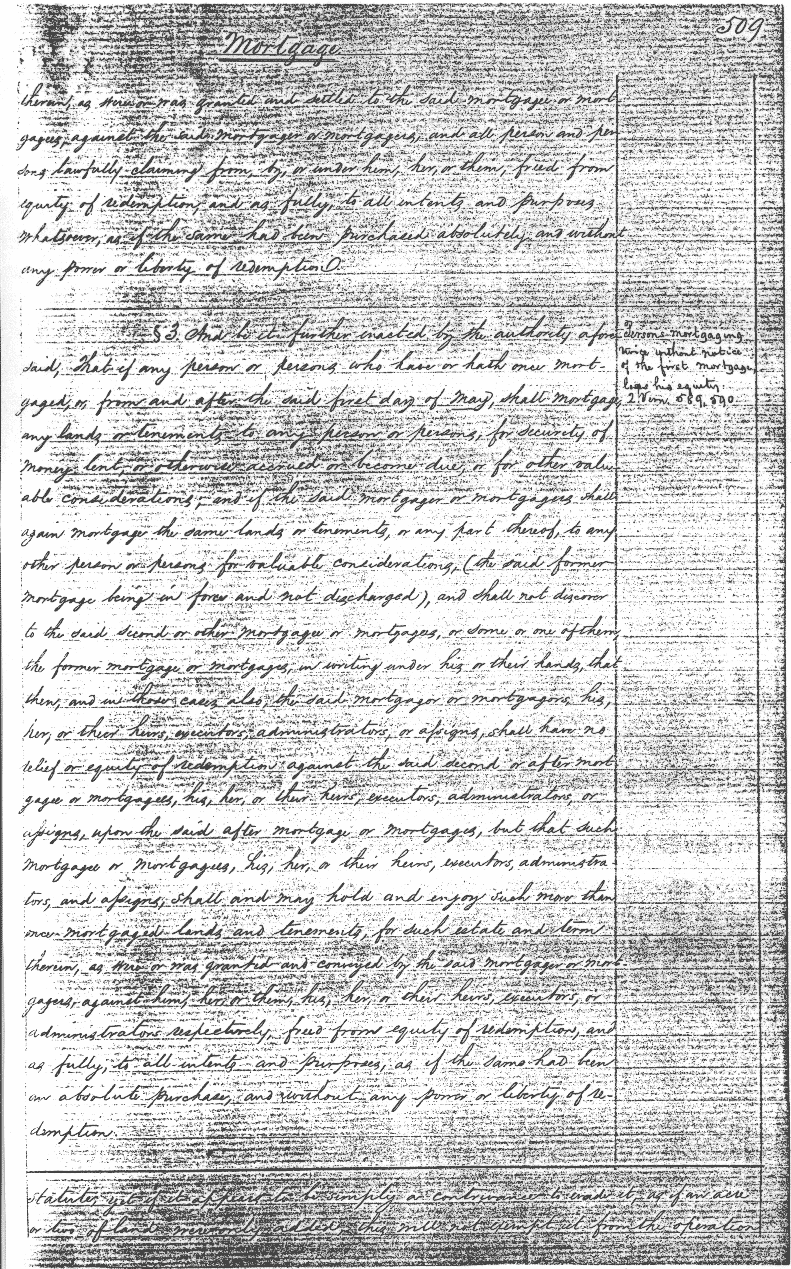 509
Mortgage
therein, as were or was granted and settled to the said mortgagee or mort
gagees, against the said mortgager or mortgagers, and all person and per
sons lawfully claiming from, by, or under him, her, or them, freed from
equity of redemption, and as fully, to all intents and purposes
whatsoever, as if the same had been purchased absolutely and without
any power or liberty of redemption.
§ 3. And be it further enacted by the authority afore
said, That if any person or persons who have or hath once mort-
gaged, or, from and after the said first day of May, shall mortgage
any lands or tenements to any person or persons, for security of
money lent, or otherwise accrued or become due, or for other valu-
able considerations, and if the said mortgager or mortgagers shall
again mortgage the same lands or tenements, or any part thereof, to any
other person or persons for valuable considerations, (the said former
mortgage being in force and not discharged), and shall not discover
to the said second or other mortgagee or mortgagees, or some or one of them,
the former mortgage or mortgages, in writing under his or their hands, that
then, and in those cases also, the said mortgagor or mortgagors, his,
her, or their heirs, executors, administrators, or assigns, shall have no
relief or equity of redemption against the said second or after mort
gagee or mortgagees, his, her, or their heirs, executors, administrators, or
assigns, upon the said after mortgage or mortgages, but that such
mortgagee or mortgagees, his, her, or their heirs, executors, administra-
tors, and assigns, shall and may hold and enjoy such more than
once mortgaged lands and tenements, for such estate and term
therein, as were or was granted and conveyed by the said mortgager or mort
gagers, against him, her, or them, his, her, or their heirs, executors, or
administrators respectively, freed from equity of redemption, and
as fully, to all intents and purposes, as if the same had been
an absolute purchase, and without any power or liberty of re-
demption.
Persons mortgaging
twice without notice
of the first mortgage,
lose his equity.
2 Vern. 589, 590
statute, yet if it appears to be simply a contrivance to evade it, as if an acre
or two of land added this will not exempt it from the operation